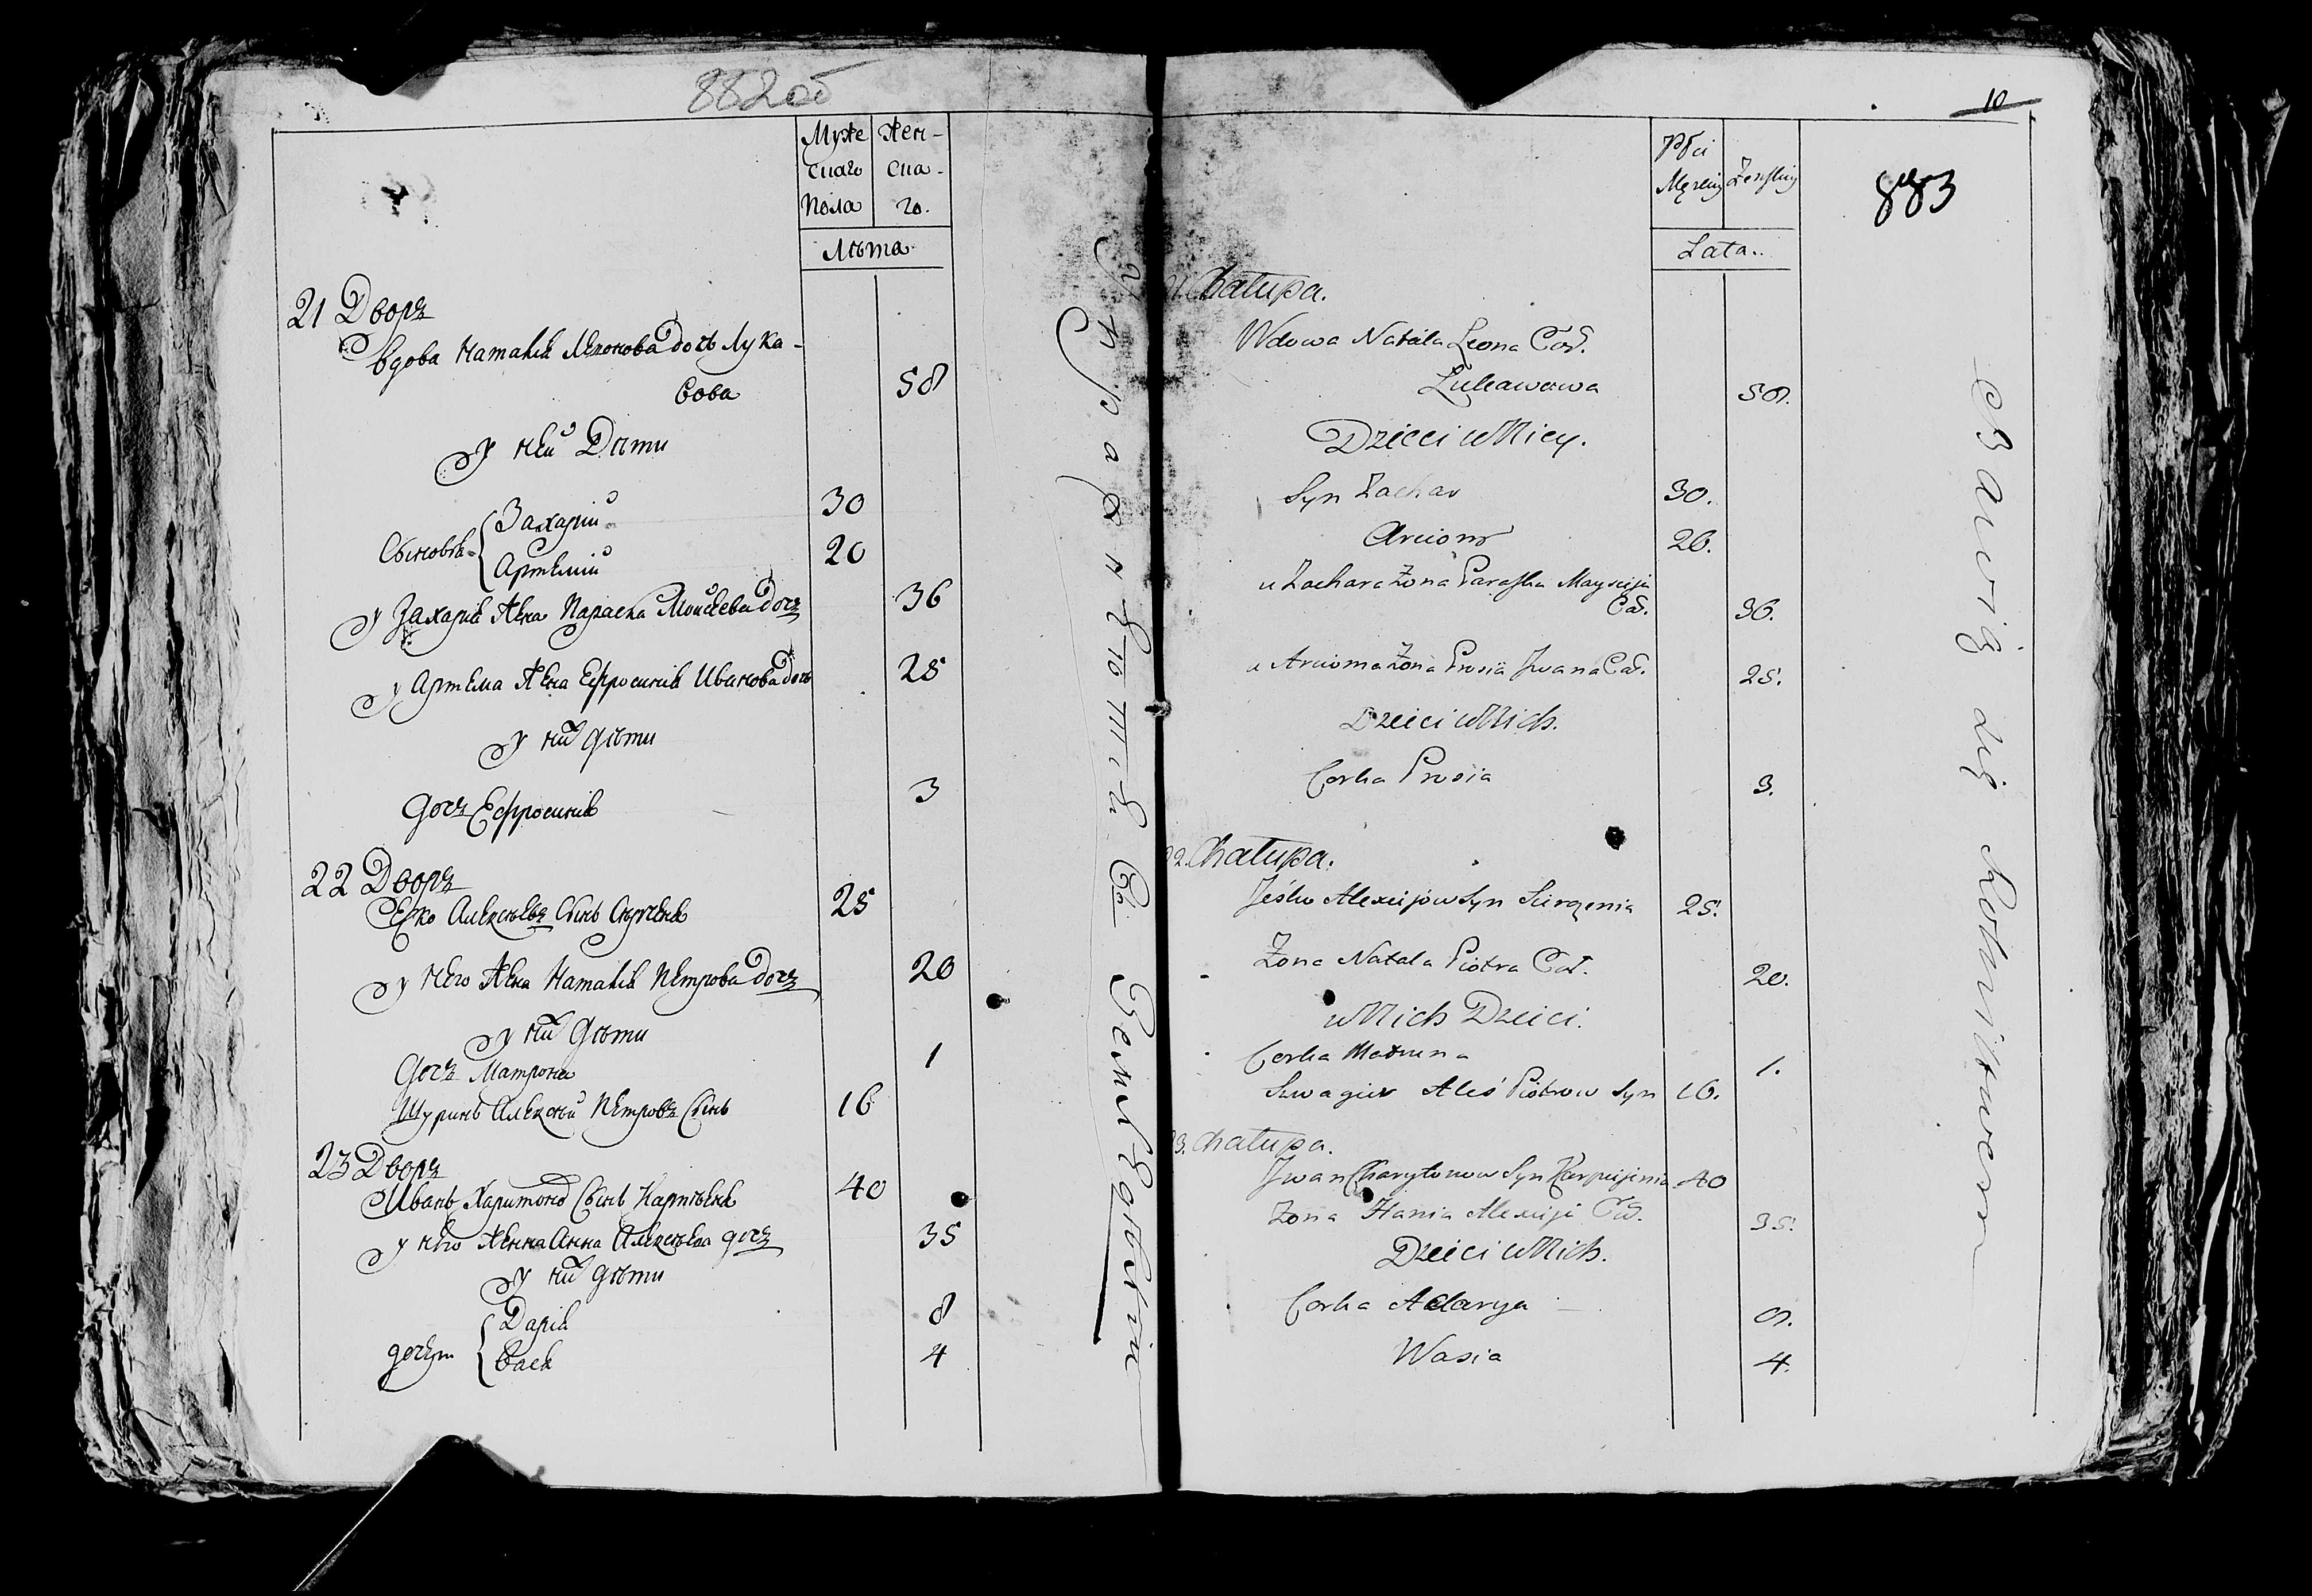 882об
Муже Жен-
скаго ска-
Пола го.
Лѣта
21 Дворъ
Вдова Наталія Леонова дочь Лука-
сова 58
У ней Дѣти
Сыновья { Захарій 30
Артемій 20
У Захарія Жена Параска Моисеева дочь 36
У Артема Жена Ефросинія Иванова дочь 25
У ний дѣти
дочъ Ефросинія 3
22 Дворъ
Еско Алексѣевъ Сынъ 25
У него Жена Наталія Петрова дочъ 20
У ний дѣти
дочъ Матрона 1
Шуринъ Алексѣй Петровъ Сынъ 16
23 Дворъ
Иванъ Харитоновъ Сынъ 40
У него Женна Анна Алексѣева дочъ 35
У ний дѣти
дочери { Дарія 8
Вася 4
10
883
Płci
Męzkiey Żeńskiey
Lata..
Chałupa.
Wdowa Natala Leona Cór.
Lukawowa 58.
Dzieci u Niey.
Syn Zachar 30.
Arciom 20.
u Zachara Żona Paraska Maysieja
Cór. 36.
u Arcioma Żona Prosia Jwana Cór. 25.
Dzieci u Nich.
Corka Prosia 3.
2. Chałupa.
Jeśko Alexiejow Syn 25.
Żona Natala Piotra Cór. 20.
u Nich Dzieci.
Corka Matruna 1.
Szwagier Aleś Piotrow Syn 16.
3. Chałupa.
Jwan Charytonow Syn 40
Żona Hania Alexieja Cór. 35.
Dzieci u Nich.
Corka Adarya 8.
Wasia 4.